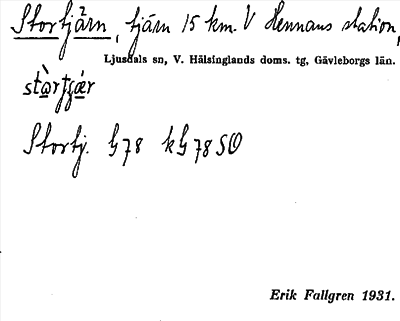 Stortjärn, tjärn 15 km. V Hennans station,
Ljusdals sn, V. Hälsinglands doms. tg, Gävleborgs län.
Stortj. G 78 kG 78 SO
Erik Fallgren 1931.